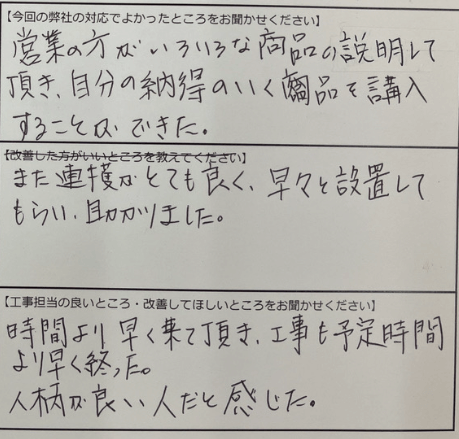 【今回の弊社の対応でよかったところをお聞かせください】
営業の方がいろいろな商品の説明して
頂き、自分の納得のいく商品を講入
することができた。
【改善した方がいいところを教えてください】
また連携がとても良く、早々と設置して
もらい、助かりました。
【工事担当の良いところ・改善してほしいところをお聞かせください】
時間より早く来て頂き、工事も予定時間
より早く終った。
人柄が良い人だと感じた。